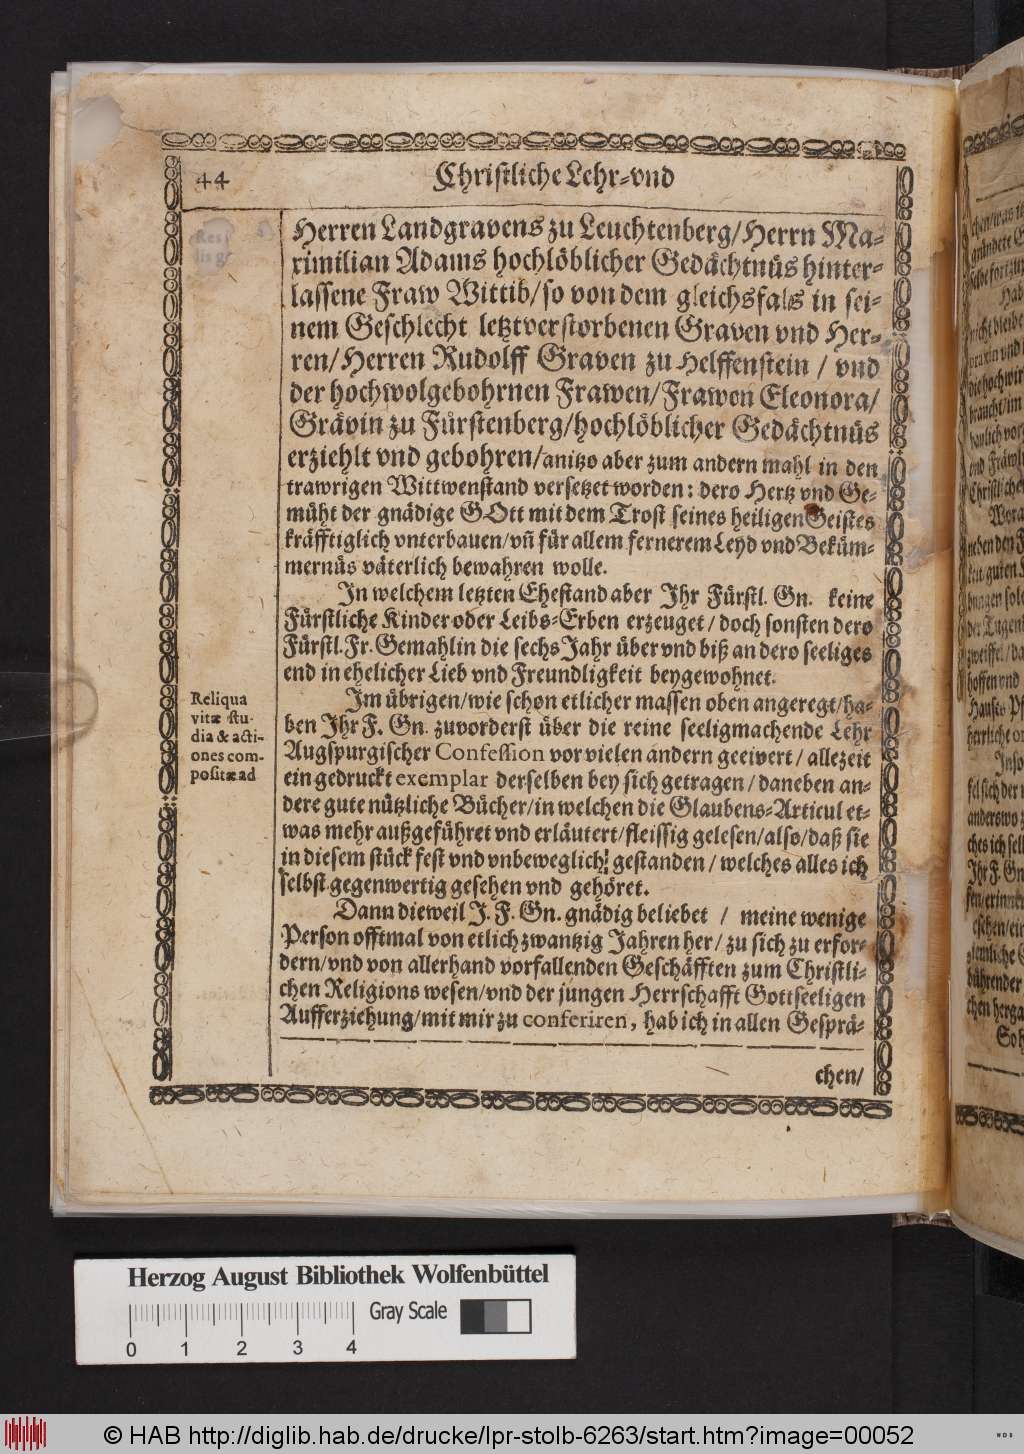 44
Christliche Lehr-vnd
Herren Landgravens zu Leuchtenberg/Herrn Ma-
ximilian Adams hochlöblicher Gedächtnüs hinter-
lassene Fraw Wittib/so von dem gleichsfals in sei-
nem Geschlecht letztverstorbenen Graven vnd Her-
ren/Herren Rudolff Graven zu Helffenstein / vnd
der hochwolgebohrnen Frawen/Frawen Eleonora/
Grävin zu Fürstenberg/hochlöblicher Gedächtnüs
erziehlt vnd gebohren/anitzo aber zum andern mahl in den
trawrigen Wittwenstand versetzet worden: dero Hertz vnd Ge-
müht der gnädige GOtt mit dem Trost seines heiligen Geistes
kräfftiglich vnterbauen/vñ für allem fernerem Leyd vnd Beküm-
mernüs väterlich bewahren wolle.
In welchem letzten Ehestand aber Ihr Fürstl. Gn. keine
Fürstliche Kinder oder Leibs-Erben erzeuget/ doch sonsten dero
Fürstl. Fr. Gemahlin die sechs Jahr über vnd biß an dero seeliges
end in ehelicher Lieb vnd Freundligkeit beygewohnet.
Reliqua
vitæ stu-
dia & acti-
ones com-
positæ ad
Im übrigen/wie schon etlicher massen oben angeregt/ha-
ben Ihr F. Gn. zuvorderst über die reine seeligmachende Lehr
Augspurgischer Confession vor vielen andern geeivert/ allezeit
ein gedruckt exemplar derselben bey sich getragen/ daneben an-
dere gute nützliche Bücher/in welchen die Glaubens-Articul et-
was mehr außgeführet vnd erläutert/fleissig gelesen/also/daß sie
in diesem stück fest vnd vnbeweglich gestanden/ welches alles ich
selbst gegenwertig gesehen vnd gehöret.
Dann dieweil J. F. Gn. gnädig beliebet / meine wenige
Person offtmal von etlich zwantzig Jahren her/ zu sich zu erfor-
dern/vnd von allerhand vorfallenden Geschäfften zum Christli-
chen Religions wesen/vnd der jungen Herrschafft Gottseeligen
Aufferziehung/mit mir zu conferiren, hab ich in allen Gesprä-
chen/
Herzog August Bibliothek Wolfenbüttel
Gray Scale
0 1 2 3 4
© HAB http://diglib.hab.de/drucke/lpr-stolb-6263/start.htm?image=00052